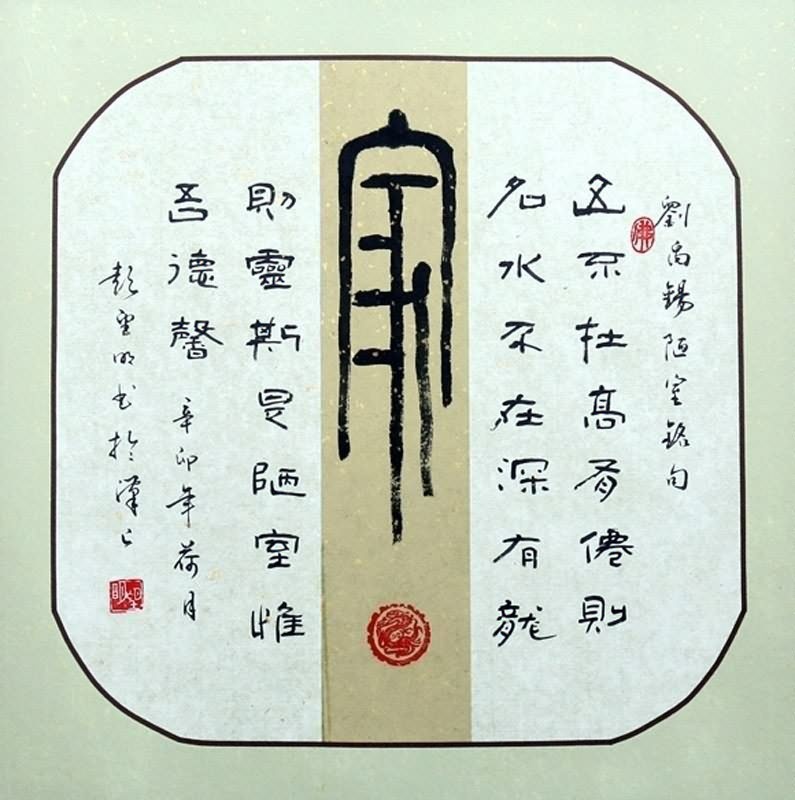 劉禹錫陋室銘句
山不在高有僊則
名水不在深有龍
家
則靈斯是陋室惟
吾德馨 辛卯年荷月
彭 明书於漢上